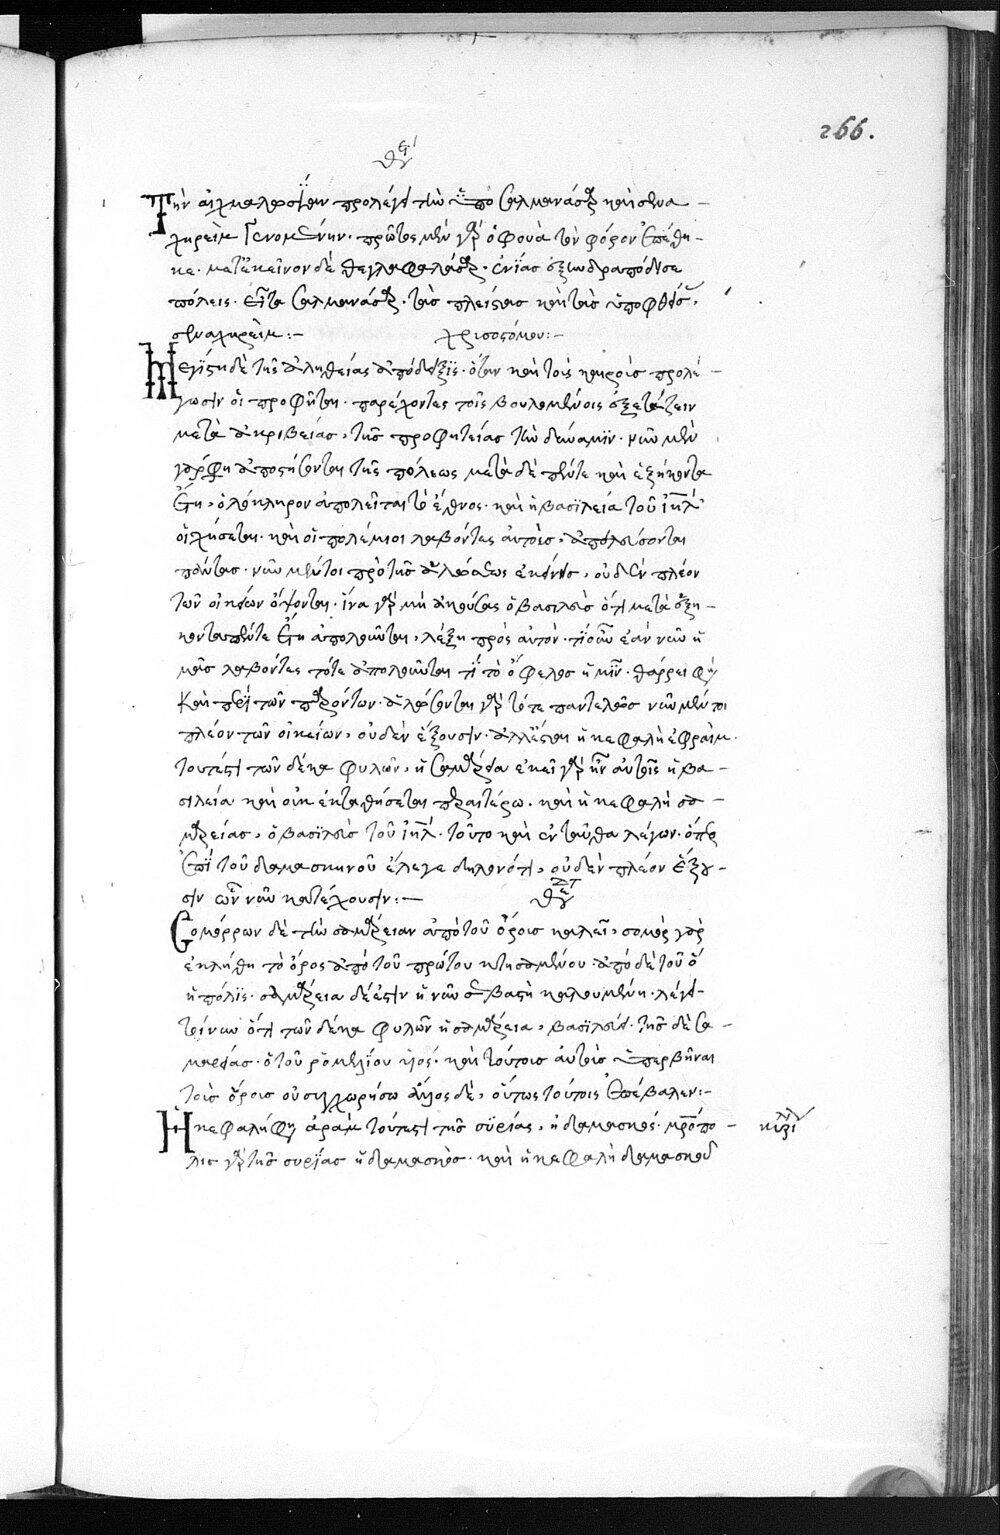 266.
Τὴν αἰχμαλωσίαν προλέγει τὴν ὑπὸ Σαλμανάσαρ καὶ Σενα–
χηρεὶμ γενομένην. πρῶτος μὲν γὰρ ὁ Φουὰ τὸν φόρον ἐπέθη–
κε. μετ' ἐκεῖνον δὲ Θεγλαφαλάσαρ. ἐνίας ἐξηνδραπόδισε
πόλεις. εἶτα Σαλμανάσαρ. τὰς πλείστας καὶ τὰς ὑπο
Σεναχηρείμ:– χρισοστόμου:–
Μεγίστη δὲ τῆς ἀληθείας ἀπόδειξις. ὅταν καὶ τοὺς καιροὺς προλέ–
γωσιν οἱ προφῆται. παρέχοντες τοῖς βουλομένοις ἐξετάζειν
μετὰ ἀκριβείας, τῆς προφητείας τὴν δύναμιν. νῦν μὲν
γάρ φη ἀποστήσονται τῆς πόλεως μετὰ δὲ πέντε καὶ ἑξήκοντα
ἔτη, ὁλόκληρον ἀπολεῖται τὸ ἔθνος. καὶ ἡ βασιλεία τοῦ ιηλ
οἰχήσεται. καὶ οἱ πολέμιοι λαβόντες αὐτοὺς, ἀπελάσονται
πάντας. νῦν μέντοι πρὸ τῆς ἁλώσεως ἐκείνης, οὐδὲν πλέον
τῶν οἰκείων ὄψονται. ἵνα γὰρ μὴ ἀκούσας ὁ βασιλεὺς ὅτι μετὰ ἑξή–
κονταπέντε ἔτη ἀπολοῦνται, λέξη πρὸς αὐτὸν. τί οὖν ἐὰν νῦν ἡ
μᾶς λαβόντες τότε ἀπολοῦνται τί τὸ ὄφελος ἡμῖν. θάρρει φη
καὶ περὶ τῶν παρόντων. ἁλώσονται γὰρ τότε παντελῶς νῦν μέντοι
πλέον τῶν οἰκείων, οὐδὲν ἕξουσιν. ἀλλ' ἔσται ἡ κεφαλὴ ἐφραὶμ.
τουτέστι τῶν δέκα φυλῶν, ἡ Σαμάρεια ἐκεῖ γὰρ ἦν αὐτοῖς ἡ βα–
σιλεία καὶ οὐκ ἐκταθήσεται περαιτέρω. καὶ ἡ κεφαλὴ σα–
μαρείας, ὁ βασιλεὺς τοῦ ιηλ. τοῦτο καὶ ἐνταῦθα λέγων. ὅπερ
ἐπὶ τοῦ δαμασκηνοῦ ἔλεγε δηλονότι, οὐδὲν πλέον ἕξου–
σιν ὧν νῦν κατέχουσιν:–
Σομόρρων δὲ τὴν σαμάρειαν ἀπὸ τοῦ ὄρους καλεῖ, σομὸρ γὰρ
ἐκλήθη τὸ ὄρος ἀπὸ τοῦ πρώτου κτησαμένου ἀπὸ δὲ τοῦ ὄ
ἡ πόλις. σαμάρεια δέ ἐστιν ἡ νῦν σεβαστὴ καλουμένη. λέγει
τοίνυν ὅτι τῶν δέκα φυλῶν ἡ σαμάρεια, βασιλεύει. τῆς δὲ Σα–
μαρείας. ὁ τοῦ ρομελίου υἱός. καὶ τούτοις αὐτοὺς ὑπερβῆναι
τοὺς ὅρους οὐ συγχωρήσω ἀγὸς δὲ, οὕτως τούτοις ἐπέβαλεν:–
Ἡ κεφαλή φη ἀρὰμ τουτέστι τῆς συρίας, ἡ δαμασκός. μρόπο–
λις γὰρ τῆς συρίας ἡ δαμασκὸς. καὶ ἡ κεφαλὴ δαμασκοῦ